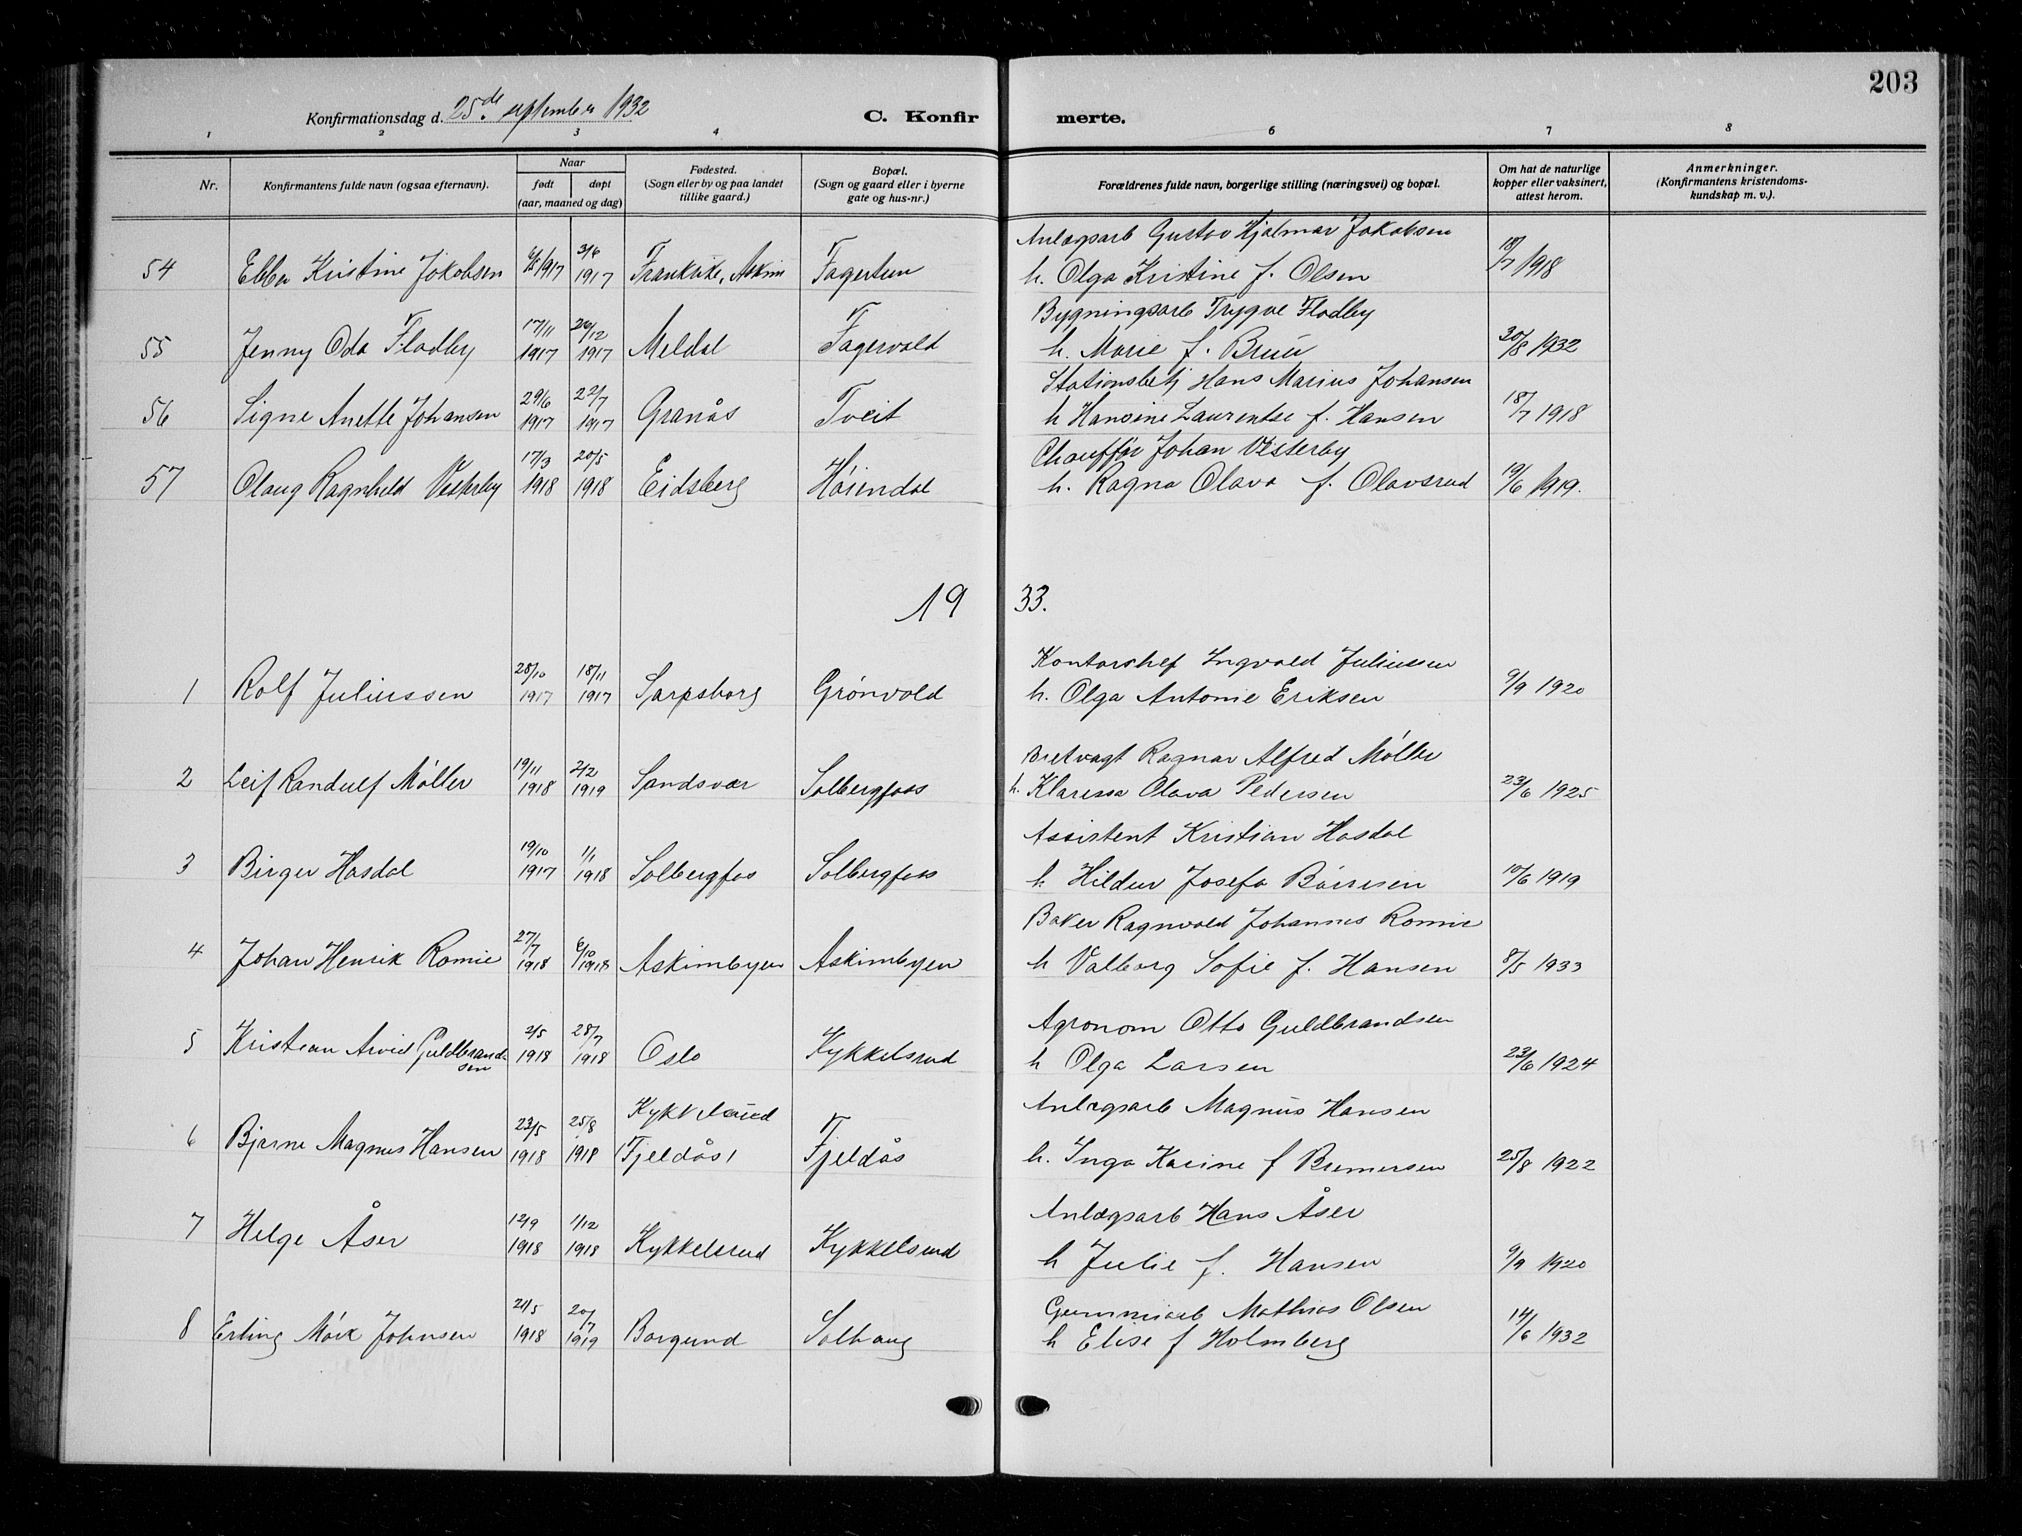 203
Konfirmationsdag d. 25de september 1932
C. Konfir merte.
1 2 3 4 6 7 8
Nr.
Konfirmantens fulde navn (ogsaa efternavn).
Naar
født
døpt
(aar, maaned og dag)
Fødested.
(Sogn eller by og paa landet
tillike gaard.)
Bopæl.
(Sogn og gaard eller i byerne
gate og hus-nr.)
Forældrenes fulde navn, borgerlige stilling (næringsvei) og bopæl.
Om hat de naturlige
kopper eller vaksinert,
attest herom.
Anmerkninger.
(Konfirmantens kristendoms-
kundskap m. v.).
Anlægsarb Gustav Hjalmar Jakobsen
54 Ebba Kristine Jakobsen 1917 3/6 1917 Askim Fagertun h. Olga Kristine f. Olsen 18/7 1918
Bygningsarb Trygve Flodby
55 Jenny Oda Flodby 17/11 1917 26/12 1917 Meldal Fagervold h. Marie f. Bruu 30/8 1932
Stationsbetj Hans Marius Johansen
56 Signe Anette Johansen 29/6 1917 22/7 1917 Granås Tveit h Hansine Laurentse f. Hansen 18/7 1918
Chauffør Johan Vesterby
57 Olaug Ragnhild Vesterby 17/3 1918 20/5 1918 Eidsberg Høiendal h. Ragna Olava f. Olavsrud 19/6 1919.
19 33.
Kontorchef Ingvald Juliussen
1 Rolf Juliussen 28/10 1917 18/11 1917 Sarpsborg Grønvold h. Olga Antonie Eriksen 9/9 1920
Bretvagt Ragnar Alfred Møller
2 Leif Randulf Møller 19/11 1918 2/2 1919 Sandsvær Solbergfoss h. Klaressa Olava Pedersen 23/6 1925
Assistent Kristian Hasdal
3 Birger Hasdal 19/10 1917 1/1 1918 Solbergfos Solbergfoss h Hildur Josefa Børresen 10/6 1919
Baker Ragnvald Johannes Romie
4 Johan Henrik Romie 27/7 1918 6/10 1918 Askimbyen Askimbyen h Valborg Sofie f. Hansen 8/5 1933
Agronom Otto Guldbrandsen
5 Kristian Arvid Guldbrand-
sen 2/5 1918 28/7 1918 Oslo Kykkelsrud h Olga Larsen 23/6 1924
Kykkelsrud Anlægsarb Magnus Hansen
6 Bjarne Magnus Hansen 23/5 1918 25/8 1918 Fjeldås Fjeldås h. Inga Karine f Bremersen 25/8 1922
Anlægsarb Hans Åser
7 Helge Åser 12/9 1918 1/12 1918 Kykkelsrud Kykkelsrud h Julie f. Hansen 9/9 1920
Gummiarb Mathias Olsen
8 Erling Mørk Johnsen 21/5 1918 20/7 1919 Borgund Solhaug h Elise f Holmberg 14/6 1932